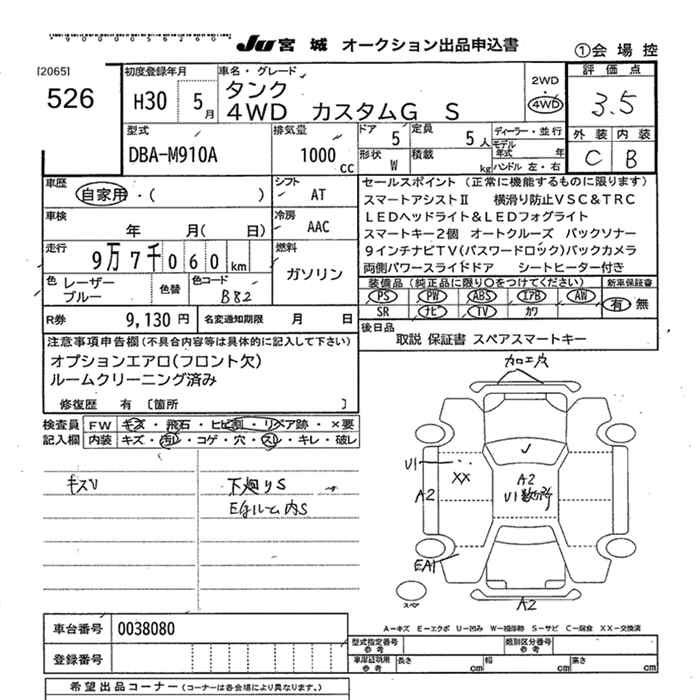 JU 宮城 オークション出品申込書
①会場控
[2065]
526
初度登録年月
H30 5月
車名・グレード
タンク
4WD カスタムG S
2WD
・
4WD
評価点
3.5
外装 内装
C B
型式
DBA-M910A
排気量
1000 cc
ドア 5
定員 5人
ディーラー・並行
モデル年式 年
形状 W
積載 kg
ハンドル 左・右
車歴
自家用・( )
シフト AT
車検
年 月( 日)
冷房 AAC
走行
9万7千060km
燃料
ガソリン
色 レーザーブルー
色替
色コード
B82
R券 9,130円
名変通知期限 月 日
セールスポイント (正常に機能するものに限ります)
スマートアシストⅡ 横滑り防止VSC&TRC
LEDヘッドライト&LEDフォグライト
スマートキー2個 オートクルーズ バックソナー
9インチナビTV(パスワードロック)バックカメラ
両側パワースライドドア シートヒーター付き
装備品(純正品に限り○をつけてください)
新車保証書
PS PW ABS エアB AW
SR ナビ TV カワ
有 無
後日品
取説 保証書 スペアスマートキー
注意事項申告欄(不具合内容等は具体的に記入して下さい)
オプションエアロ(フロント欠)
ルームクリーニング済み
修復歴 有 〔箇所 〕
検査員
記入欄
FW キズ・飛石・ヒビ割・リペア跡・×要
内装 キズ・汚レ・コゲ・穴・スレ・キレ・破レ
キズU
下廻りS
Eルーム内S
加工皮
U1
XX
A2
A2
U1数ヶ所
EA1
スペア
A2
A-キズ E-エクボ U-凹み W-補修跡 S-サビ C-腐食 XX-交換済
車台番号 0038080
登録番号
型式指定番号
参考
類別区分番号
参考
車庫証明用
参考
長さ cm
幅 cm
高さ cm
希望出品コーナー(コーナーは各会場により異なります。)